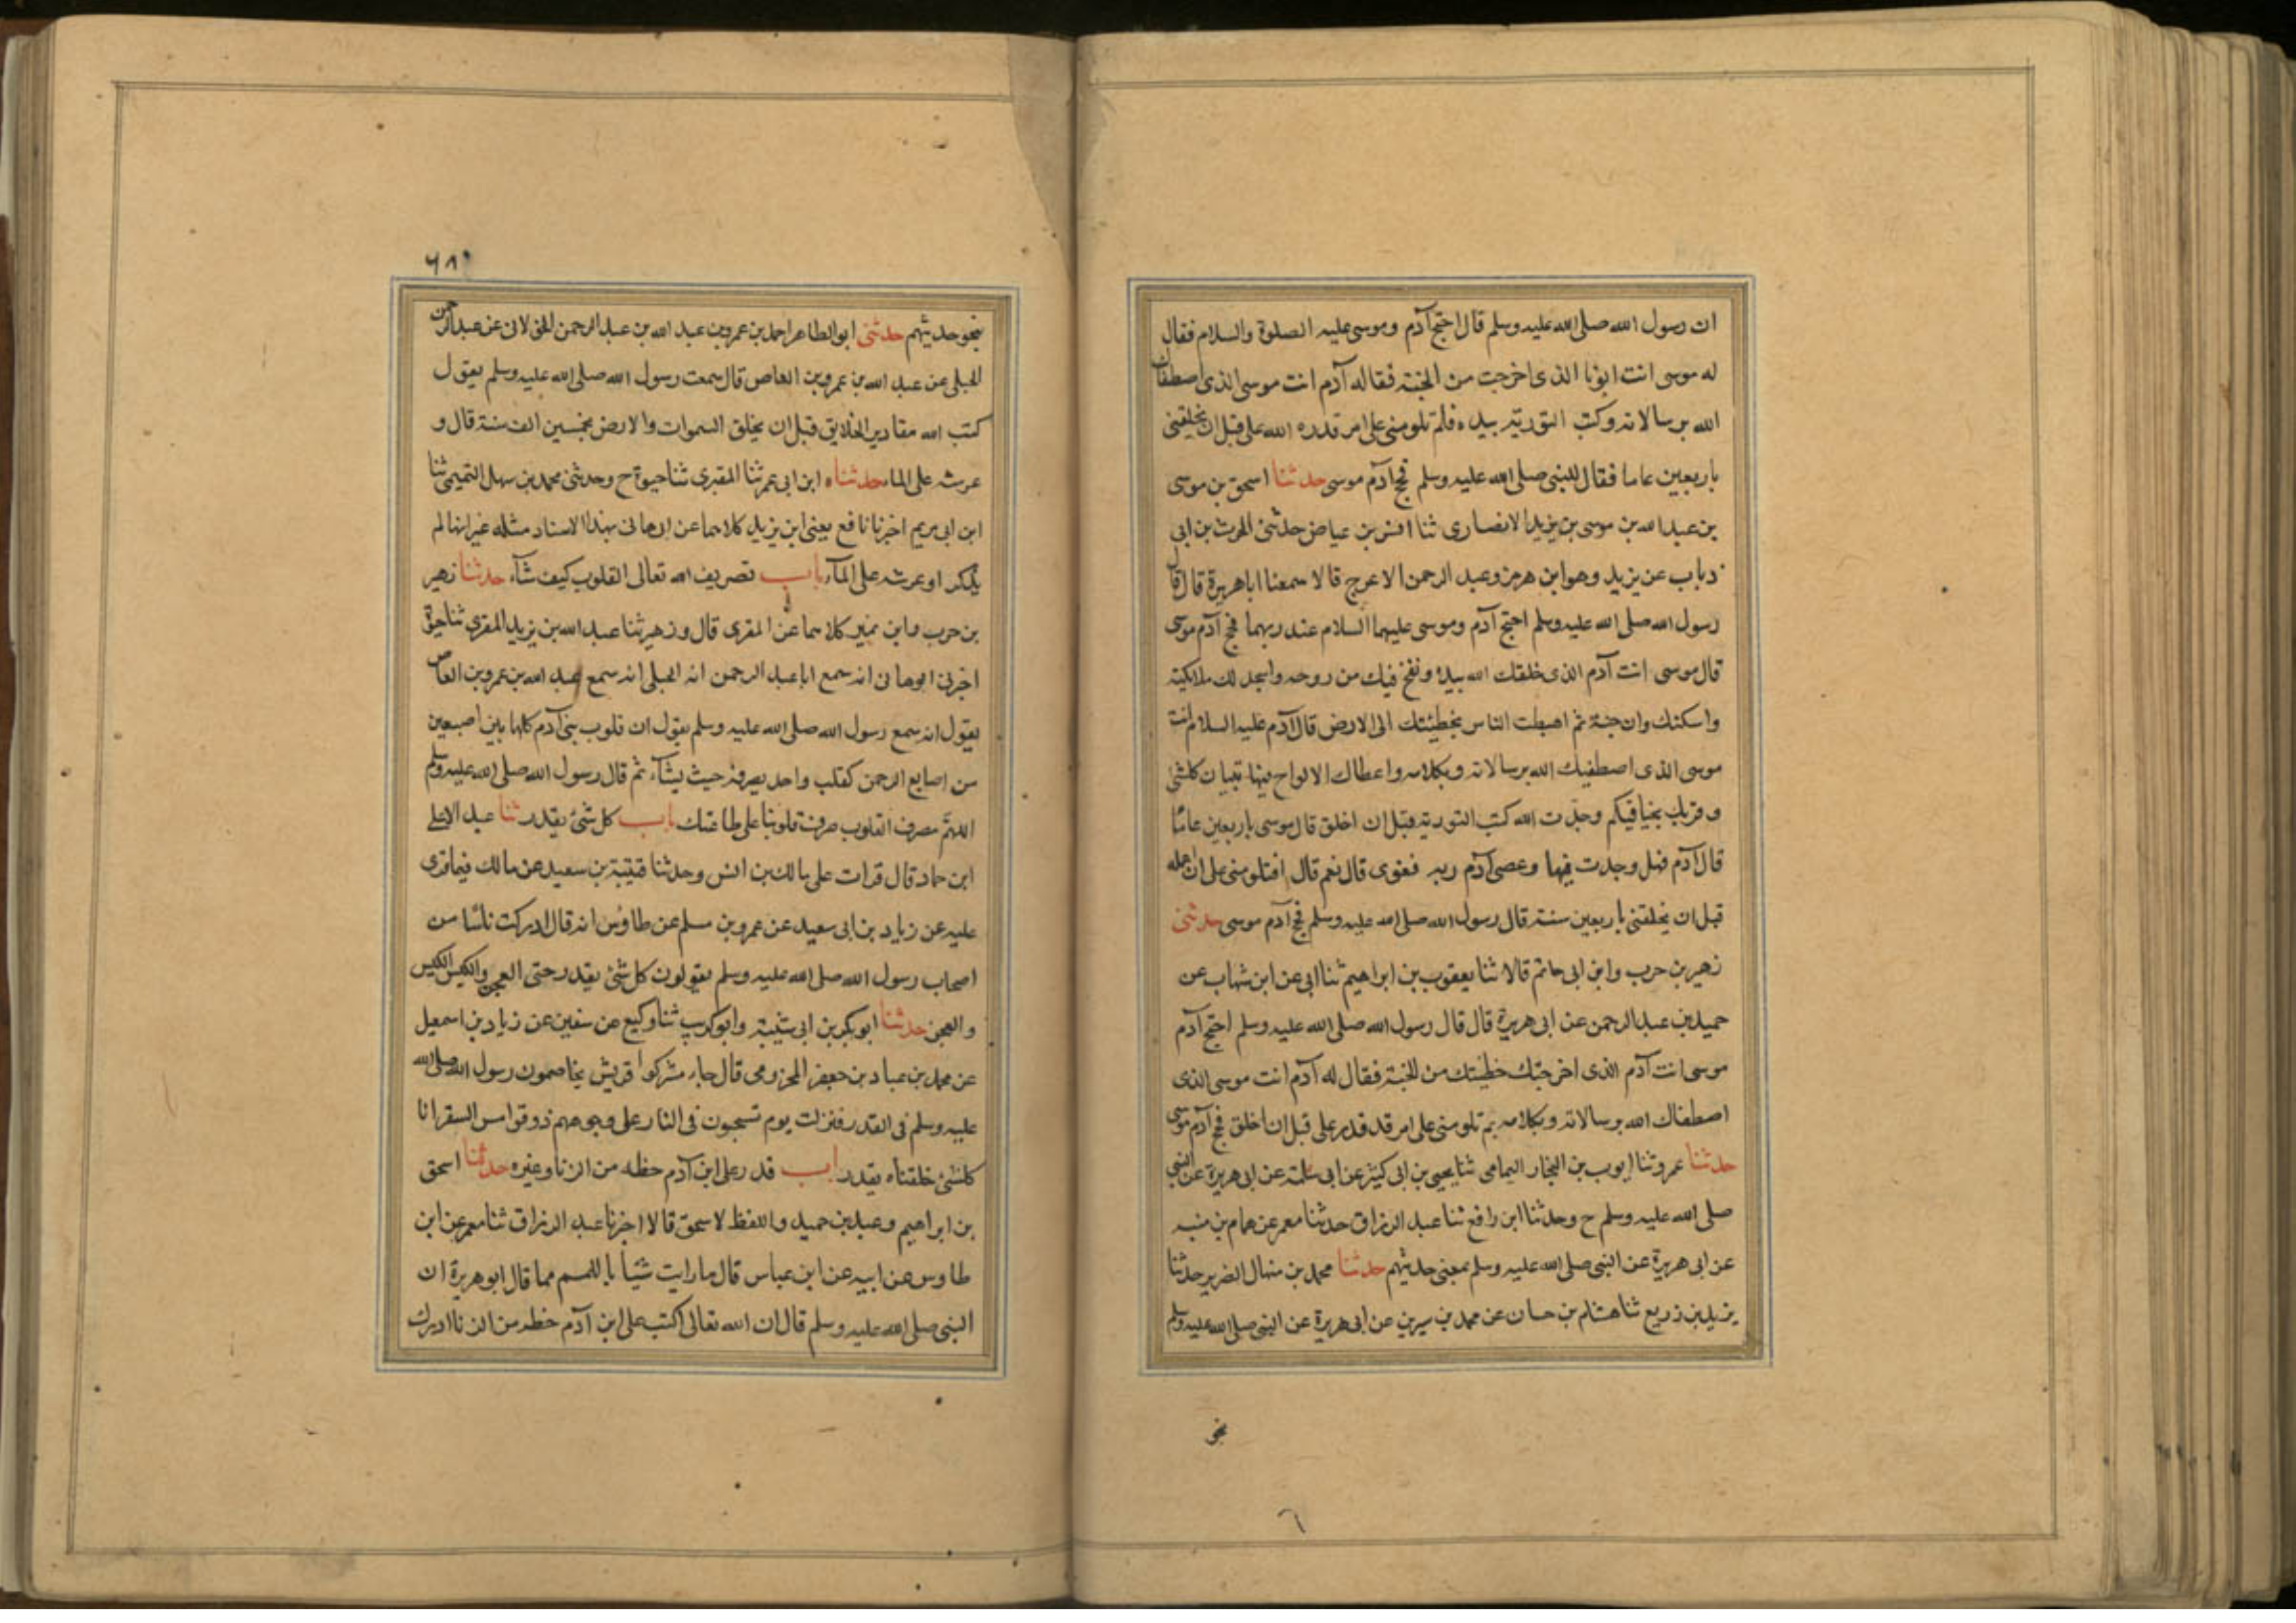 ان رسول الله صلى الله عليه وسلم قال احتج آدم وموسى عليه الصلوة والسلام فقال
له موسى انت ابونا الذى اخرجت من الجنة فقاله آدم انت موسى الذى اصطفاك
الله برسالاته وكتب التورية بيده فلم تلومنى على امر قدره الله على قبل ان يخلقنى
باربعين عاما فقال للنبى صلى الله عليه وسلم فحج آدم موسى حدثنا اسحق بن موسى
بن عبد الله بن موسى بن يزيد الانصارى ثنا انس بن عياض حدثنى الحرث بن ابى
ذباب عن يزيد وهو ابن هرمز وعبد الرحمن الاعرج قالا سمعنا اباهريرة قال قال
رسول الله صلى الله عليه وسلم احتج آدم وموسى عليهما السلام عند ربهما فحج آدم موسى
قال موسى انت آدم الذى خلقك الله بيده ونفخ فيك من روحه واسجد لك ملائكته
واسكنك وان جنة ثم اهبطت الناس بخطيئتك الى الارض قال آدم عليه السلام انت
موسى الذى اصطفيك الله برسالاته وبكلامه واعطاك الالواح فيها تبيان كلشئ
وقربك نجيا فبكم وجدت الله كتب التورية قبل ان اخلق قال موسى باربعين عاما
قال آدم فهل وجدت فيها وعصى آدم ربه فغوى قال نعم قال افتلومنى على ان عمله
قبل ان يخلقنى باربعين سنة قال رسول الله صلى الله عليه وسلم فحج آدم موسى حدثنى
زهير بن حرب وابن ابى حاتم قالا ثنا يعقوب بن ابراهيم ثنا ابى عن ابن شهاب عن
حميد بن عبد الرحمن عن ابى هريرة قال قال رسول الله صلى الله عليه وسلم احتج آدم
موسى انت آدم الذى اخرجتك خطيئتك من الجنة فقال له آدم انت موسى الذى
اصطفاك الله برسالاته وبكلامه بم تلومنى على امر قد قدر على قبل ان اخلق فحج آدم موسى
حدثنا عمرو ثنا ايوب بن النجار اليمامى ثنا يحيى بن ابى كثير عن ابى سلمة عن ابى هريرة عن النبى
صلى الله عليه وسلم ح وحدثنا ابن رافع ثنا عبد الرزاق حدثنا معمر عن همام بن منبه
عن ابى هريرة عن النبى صلى الله عليه وسلم بمعنى حديثهم حدثنا محمد بن منهال الضرير حدثنا
يزيد بن زريع ثنا هشام بن حسان عن محمد بن سيرين عن ابى هريرة عن النبى صلى الله عليه وسلم
نحو
٦
٦٨٩
نحو حديثهم حدثنى ابو الطاهر احمد بن عمرو بن عبد الله بن عبد الرحمن الخولانى عن عبد الرحمن
الحبلى عن عبد الله بن عمرو بن العاص قال سمعت رسول الله صلى الله عليه وسلم يقول
كتب الله مقادير الخلايق قبل ان يخلق السموات والارض بخمسين الف سنة قال و
عرشه على الماء حدثناه ابن ابى عمر ثنا المقبرى ثنا حيوة ح وحدثنى محمد بن سهل التميمى ثنا
ابن ابى مريم اخبرنا نافع يعنى ابن يزيد كلاهما عن ابى هانى بهذا الاسناد مثله غير انهالم
يذكر او عرشه على المآء باب تصريف الله تعالى القلوب كيف شآء حدثنا زهير
بن حرب وابن نمير كلاهما عن المقرى قال وزهير ثنا عبد الله بن يزيد المقرى ثنا حيوة
اخبرنى ابوهانى انه سمع اباعبد الرحمن انه الحبلى انه سمع عبد الله بن عمرو بن العاص
يقول انه سمع رسول الله صلى الله عليه وسلم يقول ان قلوب بنى آدم كلها بين اصبعين
من اصابع الرحمن كقلب واحد يصرفه حيث يشآء ثم قال رسول الله صلى الله عليه وسلم
اللهم مصرف القلوب صرفت قلوبنا على طاعتك باب كل شئ بقدر ثنا عبد الاعلى
ابن حماد قال قرات على مالك بن انس وحدثنا قتيبة بن سعيد عن مالك فيما قرى
عليه عن زياد بن ابى سعيد عن عمرو بن مسلم عن طاوس انه قال ادركت ناسا من
اصحاب رسول الله صلى الله عليه وسلم يقولون كل شئ بقدر حتى العجز والكيس الكيس
والعجز حدثنا ابو بكر بن ابى شيبة وابو كريب ثنا وكيع عن سفين عن زياد بن اسمعيل
عن محمد بن عباد بن جعفر المخزومى قال جاء مشركوا قريش يخاصمون رسول الله صلى الله
عليه وسلم فى القدر فنزلت يوم تسحبون فى النار على وجوههم ذوقوا مس السقر انا
كلشئ خلقناه بقدر باب قدر على ابن آدم حظه من الزنا وغيره حدثنا اسحق
بن ابراهيم وعبد بن حميد واللفظ لاسحق قالا اخبرنا عبد الرزاق ثنا معمر عن ابن
طاوس عن ابيه عن ابن عباس قال ما رايت شيئا باللمم مما قال ابو هريرة ان
النبى صلى الله عليه وسلم قال ان الله تعالى كتب على ابن آدم حظه من الزنا ادرك